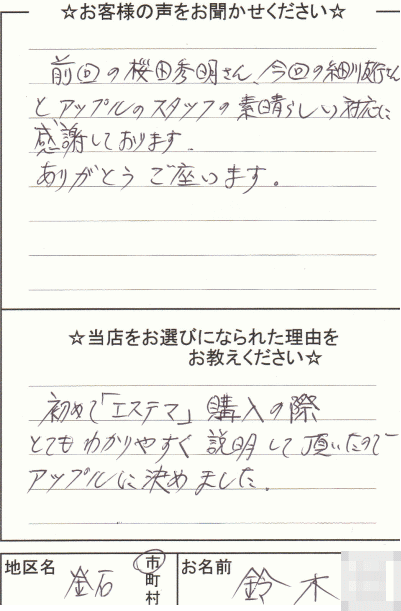 ☆お客様の声をお聞かせください☆
前回の桜田秀明さん、今回の細川さん
とアップルのスタッフの素晴らしい対応に
感謝しております.
ありがとうご座います。
☆当店をお選びになられた理由を
お教えください☆
初めて「エステマ」購入の際
とてもわかりやすく説明して頂いたので
アップルに決めました.
地区名 釜石 市 町 村 お名前 鈴木